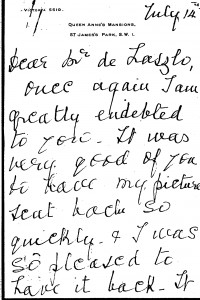 VICTORIA 5516.
July 14
QUEEN ANNE'S MANSIONS,
ST JAMES'S PARK, S.W. 1.
Dear Mr de Laszlo,
once again I am
greatly endebted
to you. It was
very good of you
to have my picture
sent back so
quickly. & I was
so pleased to
have it back. It